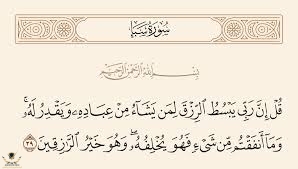 سُورَةُ سَبَإٍ
بِسْمِ ٱللَّهِ ٱلرَّحْمَٰنِ ٱلرَّحِيمِ
قُلْ إِنَّ رَبِّي يَبْسُطُ ٱلرِّزْقَ لِمَن يَشَآءُ مِنْ عِبَادِهِۦ وَيَقْدِرُ لَهُۥۚ
وَمَآ أَنفَقْتُم مِّن شَىْءٍ فَهُوَ يُخْلِفُهُۥۖ وَهُوَ خَيْرُ ٱلرَّٰزِقِينَ ٣٩